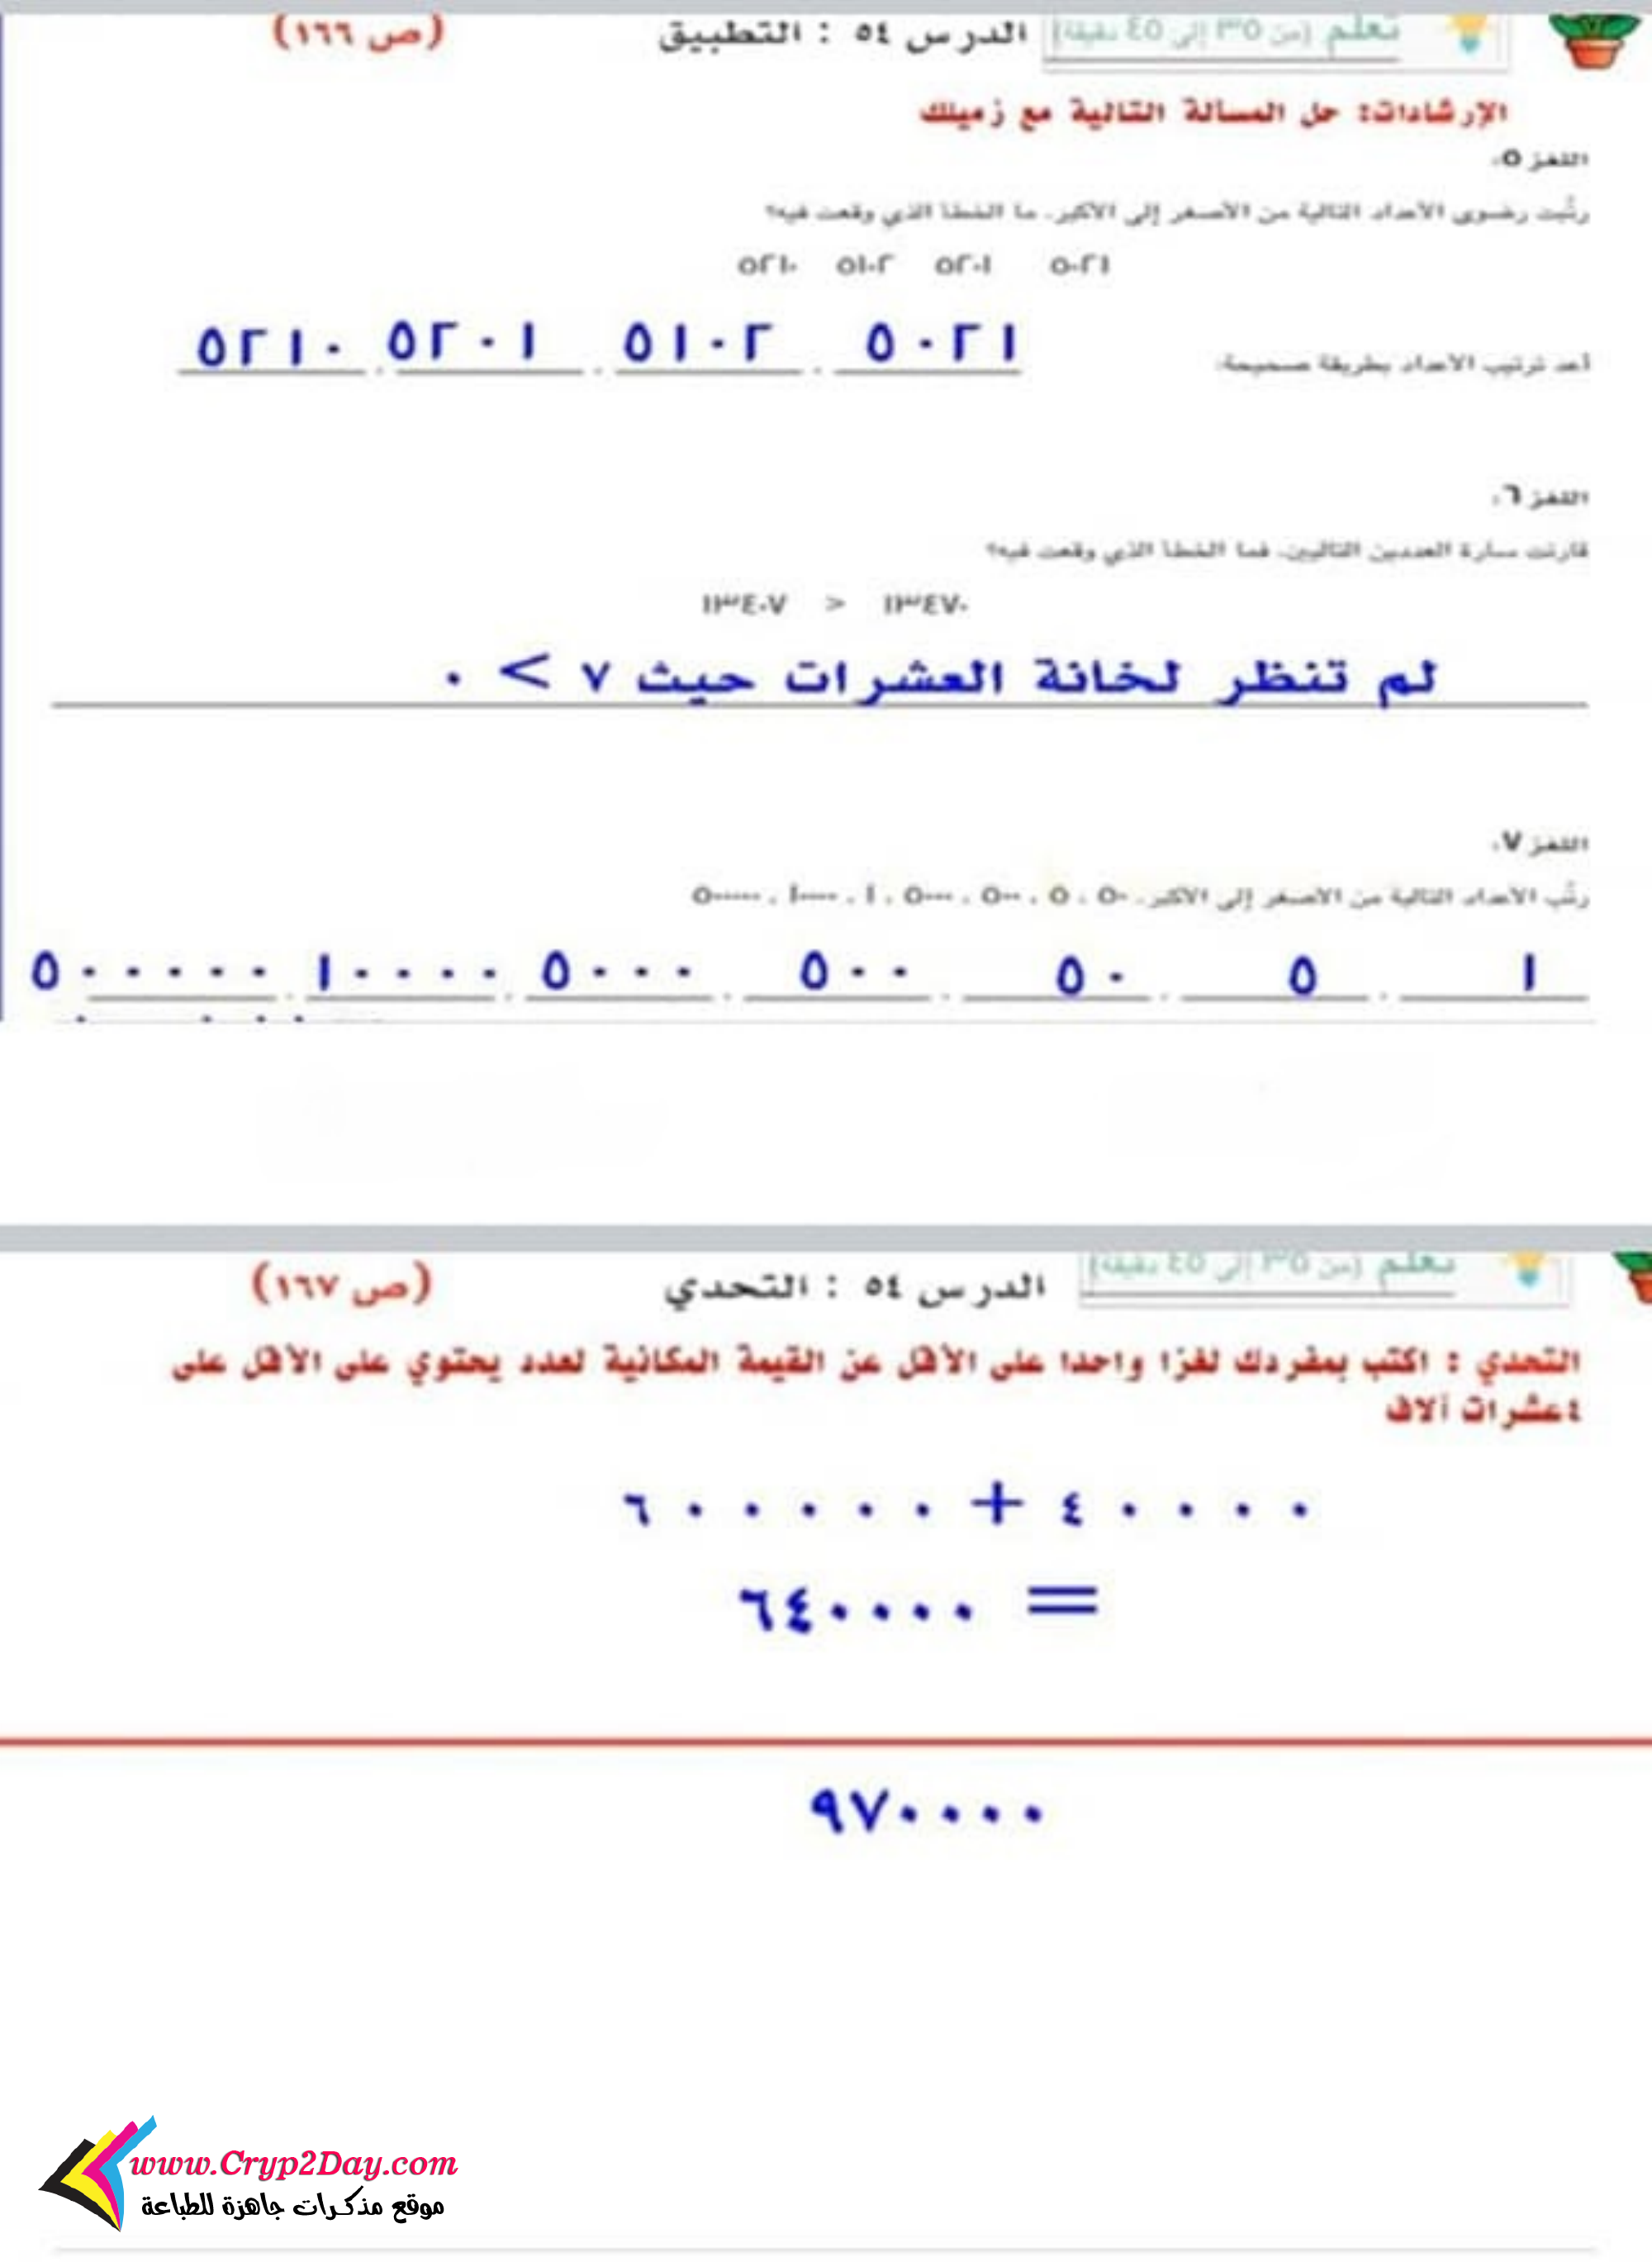 تعلم (من ٣٥ إلى ٤٥ دقيقة) الدرس ٥٤ : التطبيق (ص ١٦٦)
الإرشادات: حل المسألة التالية مع زميلك
اللغز ٥:
رتَّبت رضوى الأعداد التالية من الأصغر إلى الأكبر. ما الخطأ الذي وقعت فيه؟
٥٢١٠ ٥١٠٢ ٥٢٠١ ٥٠٢١
أعد ترتيب الأعداد بطريقة صحيحة: ٥٠٢١ ، ٥١٠٢ ، ٥٢٠١ ، ٥٢١٠
اللغز ٦:
قارنت سارة العددين التاليين. فما الخطأ الذي وقعت فيه؟
١٣٤٠٧ > ١٣٤٧٠
لم تنظر لخانة العشرات حيث ٧ > ٠
اللغز ٧:
رتِّب الأعداد التالية من الأصغر إلى الأكبر. ٥٠ ، ٥ ، ٥٠٠ ، ٥٠٠٠ ، ١ ، ١٠٠٠٠ ، ٥٠٠٠٠٠
١ ، ٥ ، ٥٠ ، ٥٠٠ ، ٥٠٠٠ ، ١٠٠٠٠ ، ٥٠٠٠٠٠
تعلم (من ٣٥ إلى ٤٥ دقيقة) الدرس ٥٤ : التحدي (ص ١٦٧)
التحدي : اكتب بمفردك لغزا واحدا على الأقل عن القيمة المكانية لعدد يحتوي على الأقل على
٤ عشرات آلاف
٦٠٠٠٠٠ + ٤٠٠٠٠
٦٤٠٠٠٠ =
٩٧٠٠٠٠
www.Cryp2Day.com
موقع مذكرات جاهزة للطباعة